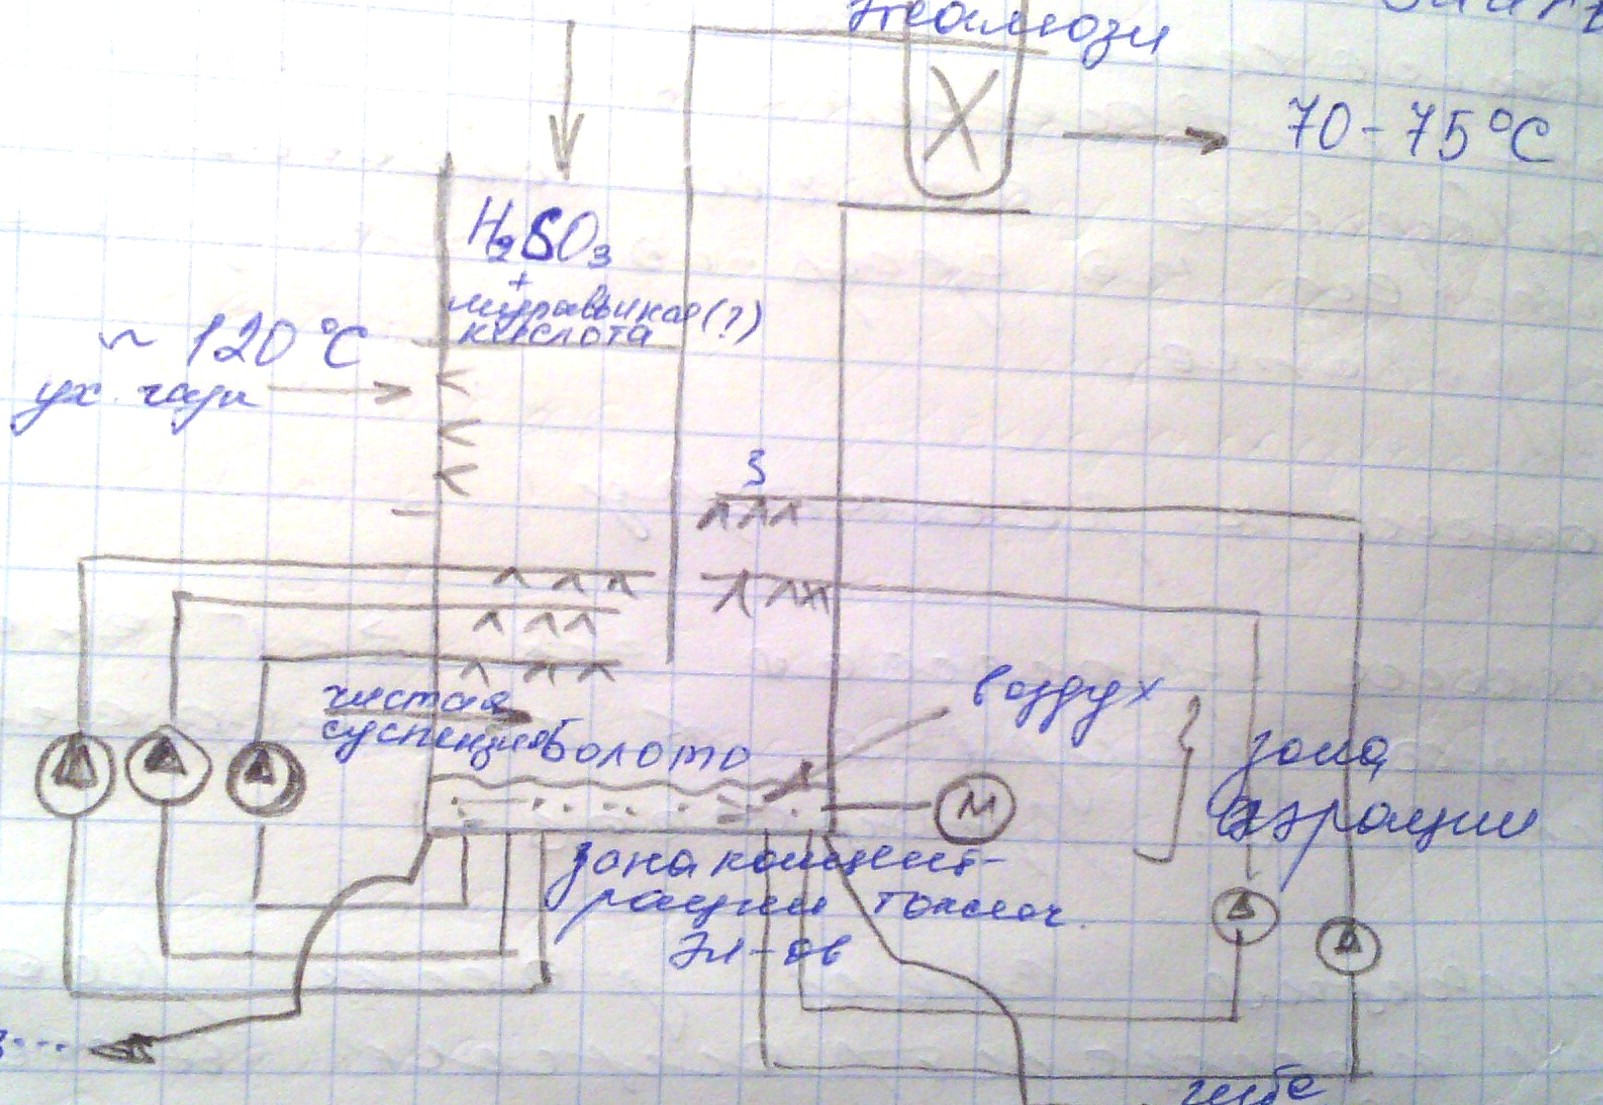 жалюзи
70-75°C
H₂SO₃
+
муравьиная (?)
кислота
~ 120°C
ух. газы
3
чистая
суспензия
болото
воздух
зона
аэрации
M
зона концент-
рации токсич.
эл-ов